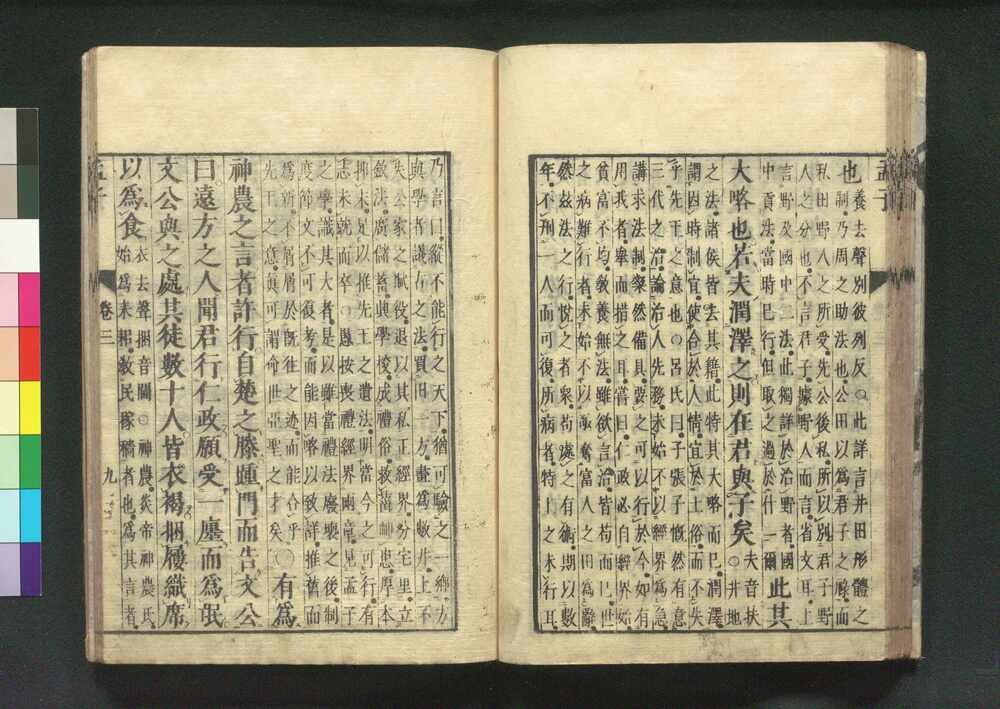 孟子
也養去聲別彼列反○此詳言井田形體之
制乃周之助法也公田以爲君子之祿而
私田野人之所受先公後私所以別君子野
人之分也不言君子據野人而言省文耳上
言野及國中二法此獨詳於治野者國
中貢法當時已行但取之過於什一爾此其
大略也若夫潤澤之則在君與子矣夫音扶○井地
之法諸侯皆去其籍此特其大略而已潤澤
謂因時制宜使合於人情宜於土俗而不失
乎先王之意也○呂氏曰子張子慨然有意
三代之治論治人先務未始不以經界爲急
講求法制粲然備具要之可以行於今如有
用我者舉而措之耳嘗曰仁政必自經界始
貧富不均敎養無法雖欲言治皆苟而已世
之病難行者未始不以亟奪富人之田爲辭
然茲法之行悅之者衆苟處之有術期以數
年不刑一人而可復所病者特上之未行耳
乃言曰縱不能行之天下猶可驗之一鄕方
與學者議古之法買田一方畫爲數井上不
失公家之賦役退以其私正經界分宅里立
斂法廣儲蓄興學校成禮俗救菑恤患厚本
抑末足以推先王之遺法明當今之可行有
志未就而卒○愚按喪禮經界兩章見孟子
之學識其大者是以雖當禮法廢壞之後制
度節文不可復考而能因略以致詳推舊而
爲新不屑屑於旣往之迹而能合乎
先王之意眞可謂命世亞聖之才矣○有爲
神農之言者許行自楚之滕踵門而告文公
曰遠方之人聞君行仁政願受一廛而爲氓
文公與之處其徒數十人皆衣褐捆屨織席
以爲食衣去聲捆音閫○神農炎帝神農氏
始爲耒耜敎民稼穡者也爲其言者
孟子 卷三 九